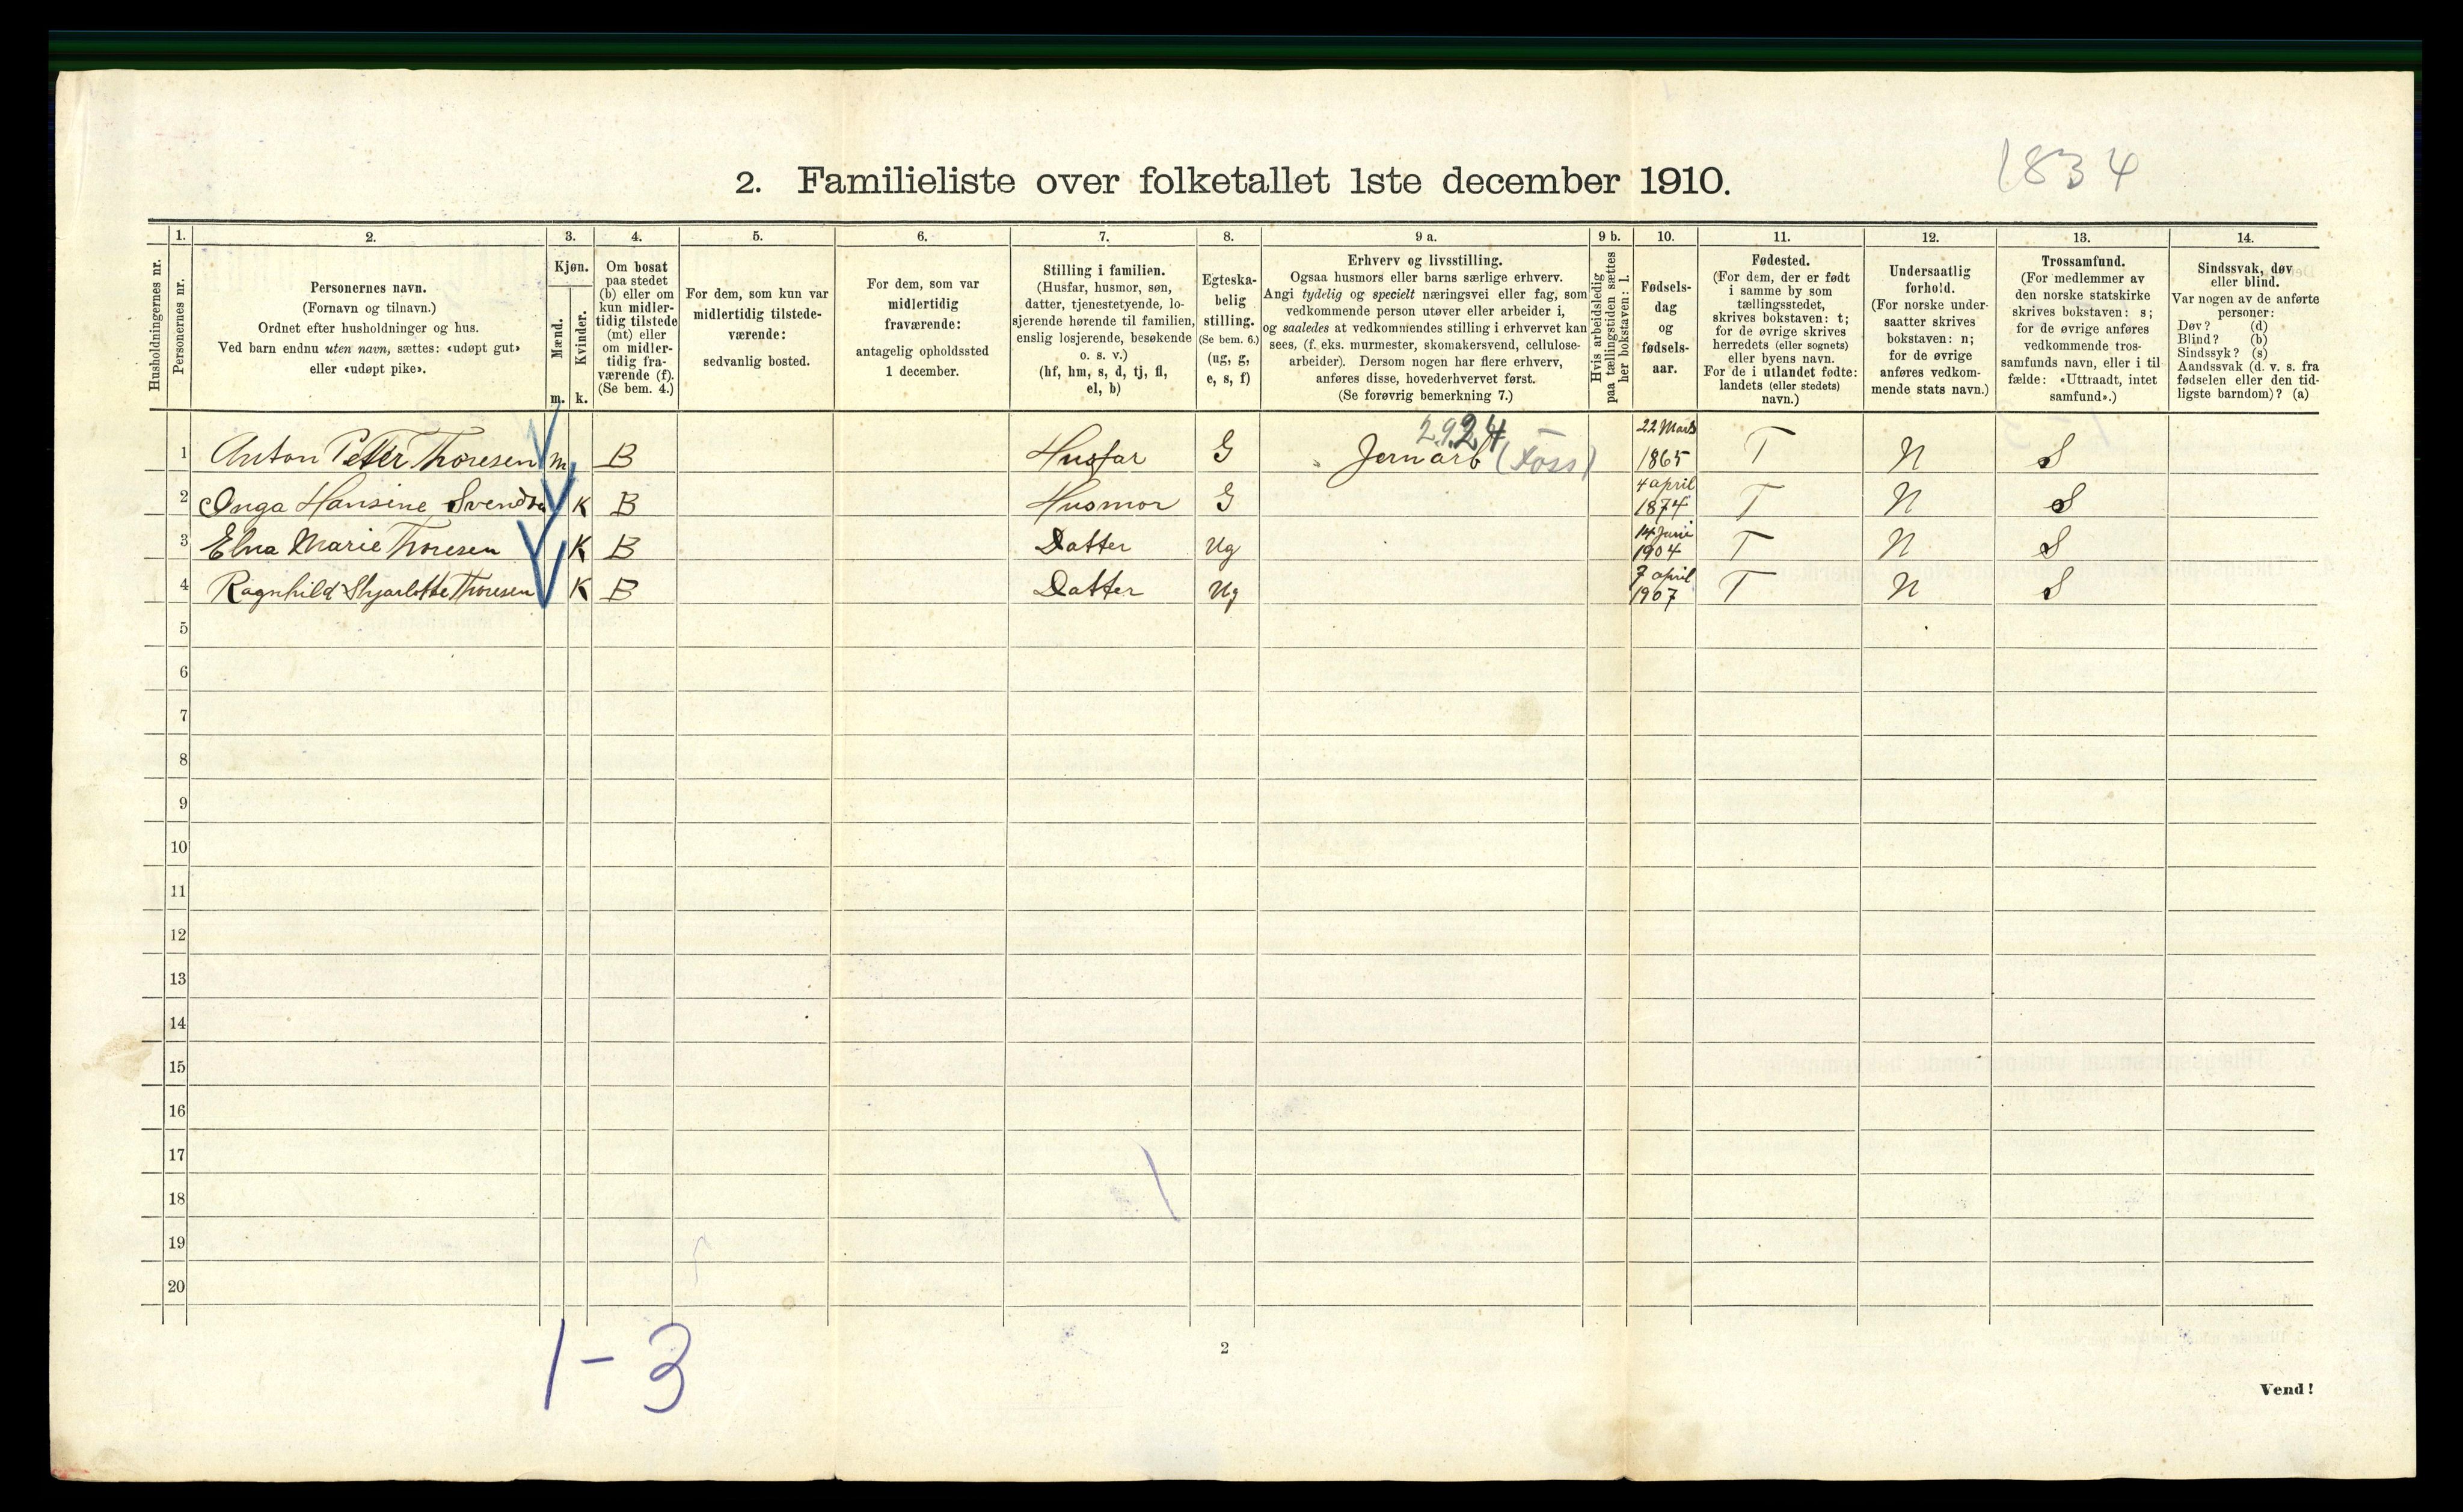 1834
2. Familieliste over folketallet 1ste december 1910.
1. 2. 3. 4. 5. 6. 7. 8. 9 a. 9 b. 10. 11. 12. 13. 14.
Husholdningernes nr.
Personernes nr.
Personernes navn.
(Fornavn og tilnavn.)
Ordnet efter husholdninger og hus.
Ved barn endnu uten navn, sættes: «udøpt gut»
eller «udøpt pike».
Kjøn.
Mænd.
Kvinder.
m. k.
Om bosat
paa stedet
(b) eller om
kun midler-
tidig tilstede
(mt) eller
om midler-
tidig fra-
værende (f).
(Se bem. 4.)
For dem, som kun var
midlertidig tilstede-
værende:
sedvanlig bosted.
For dem, som var
midlertidig
fraværende:
antagelig opholdssted
1 december.
Stilling i familien.
(Husfar, husmor, søn,
datter, tjenestetyende, lo-
sjerende hørende til familien,
enslig losjerende, besøkende
o. s. v.)
(hf, hm, s, d, tj, fl,
el, b)
Egteska-
belig
stilling.
(Se bem. 6.)
(ug, g,
e, s, f)
Erhverv og livsstilling.
Ogsaa husmors eller barns særlige erhverv.
Angi tydelig og specielt næringsvei eller fag, som
vedkommende person utøver eller arbeider i,
og saaledes at vedkommendes stilling i erhvervet kan
sees, (f. eks. murmester, skomakersvend, cellulose-
arbeider). Dersom nogen har flere erhverv,
anføres disse, hovederhvervet først.
(Se forøvrig bemerkning 7.)
Hvis arbeidsledig
paa tællingstiden sættes
her bokstaven: l.
Fødsels-
dag
og
fødsels-
aar.
Fødested.
(For dem, der er født
i samme by som
tællingsstedet,
skrives bokstaven: t;
for de øvrige skrives
herredets (eller sognets)
eller byens navn.
For de i utlandet fødte:
landets (eller stedets)
navn.)
Undersaatlig
forhold.
(For norske under-
saatter skrives
bokstaven: n;
for de øvrige
anføres vedkom-
mende stats navn.)
Trossamfund.
(For medlemmer av
den norske statskirke
skrives bokstaven: s;
for de øvrige anføres
vedkommende tros-
samfunds navn, eller i til-
fælde: «Uttraadt, intet
samfund».)
Sindssvak, døv
eller blind.
Var nogen av de anførte
personer:
Døv? (d)
Blind? (b)
Sindssyk? (s)
Aandssvak (d. v. s. fra
fødselen eller den tid-
ligste barndom)? (a)
2924
1 Anton Petter Thoresen m B Husfar G Jernarb 22 Mars 1865 T N S
2 Inga Hansine K B Husmor G 4 april 1874 T N S
3 Elna Marie Thoresen K B Datter Ug 14 Juni 1904 T N S
4 Ragnhild Thoresen K B Datter Ug 7 april 1907 T N S
5
6
7
8
9
10
11
12
13
14
15
16
17
18
19
20
1-3
2
Vend!